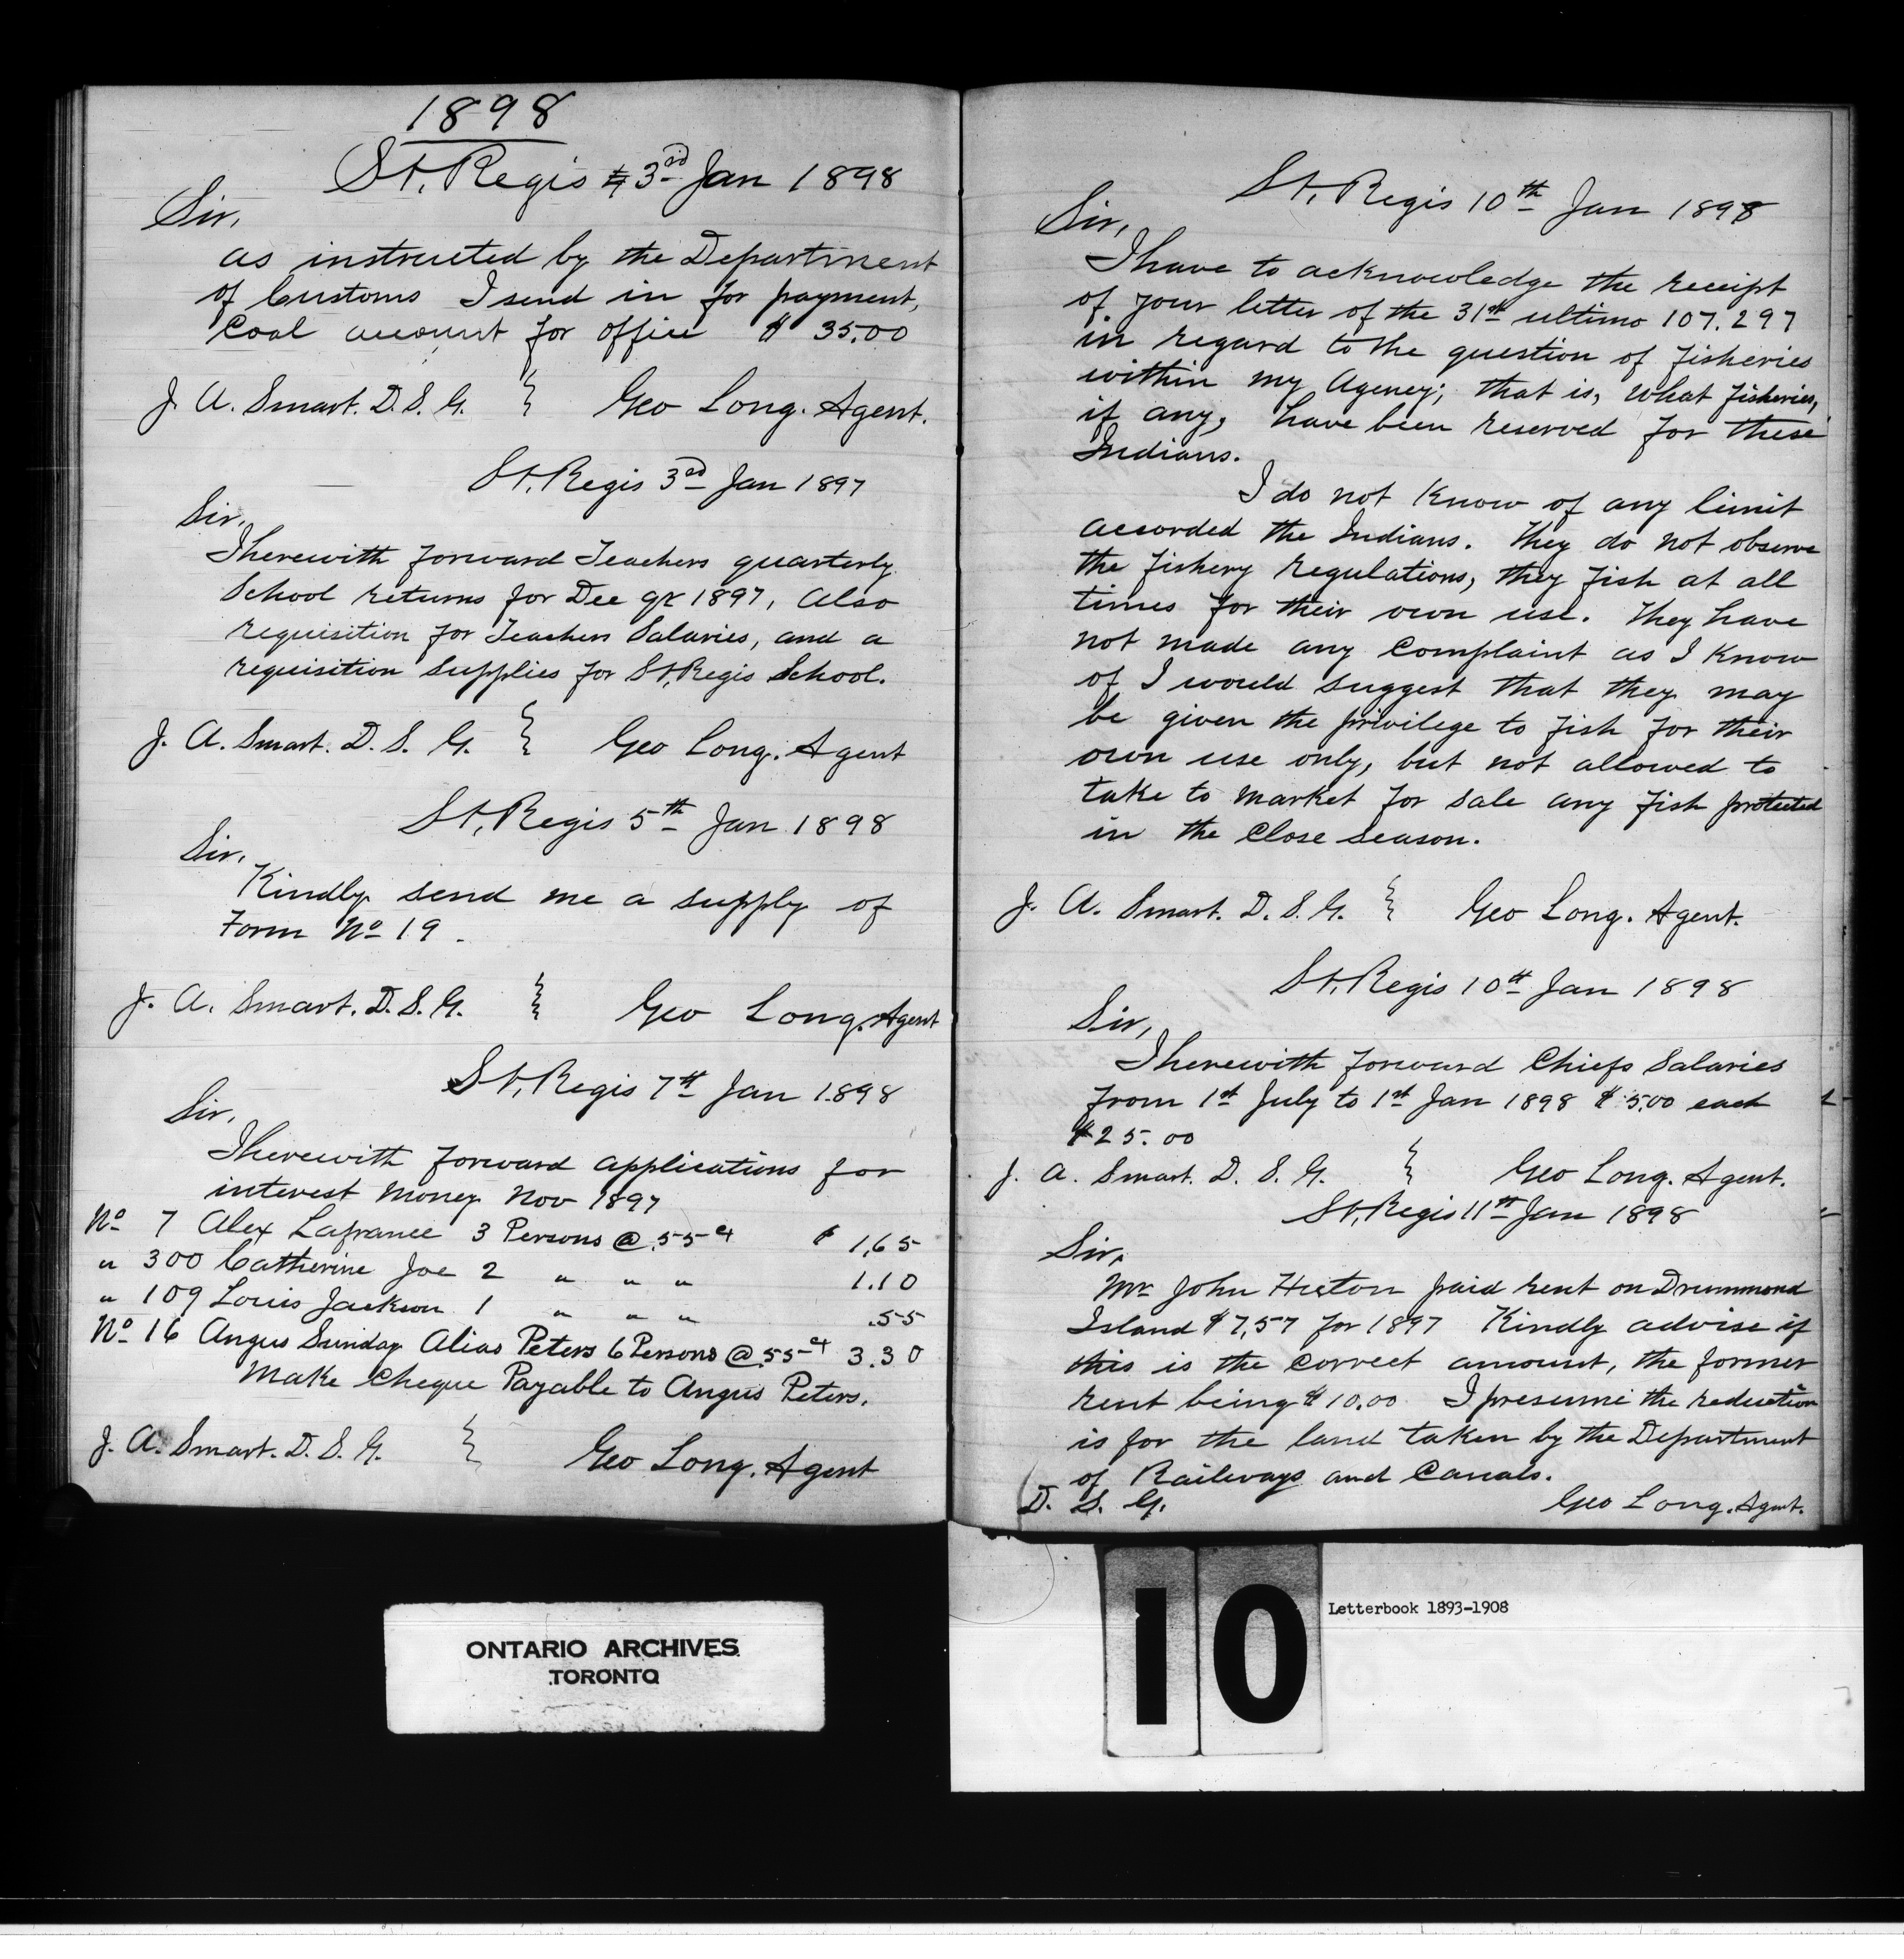 1898
St. Regis 3rd Jan 1898
Sir,
as instructed by the Department
of Customs I send in for payment,
Coal account for office $ 35.00
J. A. Smart. D. S. G. Geo Long. Agent.
St. Regis 3rd Jan 1897
Sir,
I herewith forward Teachers quarterly
School returns for Dec qr 1897, Also
requisition for Teachers Salaries, and a
requisition supplies for St. Regis School.
J. A. Smart. D. S. G. Geo Long. Agent
St. Regis 5th Jan 1898
Sir,
Kindly send me a supply of
Form No 19.
J. A. Smart. D. S. G. Geo Long. Agent
St. Regis 7th Jan 1898
Sir,
I herewith forward applications for
interest money Nov 1897
No 7 Alex Lafrance 3 Persons @ .55 ct $ 1.65
" 300 Catherine Joe 2 " " " 1.10
" 109 Louis Jackson 1 " " " .55
No 16 Angus Sunday Alias Peters 6 Persons @ .55 ct 3.30
Make Cheque Payable to Angus Peters.
J. A. Smart. D. S. G. Geo Long. Agent
St. Regis 10th Jan 1898
Sir,
I have to acknowledge the receipt
of your letter of the 31st ultimo 107.297
in regard to the question of fisheries
within my Agency; that is, what fisheries,
if any, have been reserved for these
Indians.
I do not know of any limit
accorded the Indians. They do not observe
the fishery regulations, they fish at all
times for their own use. They have
not made any complaint as I know
of I would suggest that they may
be given the privilege to fish for their
own use only, but not allowed to
take to market for sale any fish protected
in the close season.
J. A. Smart. D. S. G. Geo Long. Agent.
St. Regis 10th Jan 1898
Sir,
I herewith forward Chiefs Salaries
from 1st July to 1st Jan 1898 $ 5.00 each
$25.00
J. A. Smart. D. S. G. Geo Long. Agent.
St. Regis 11th Jan 1898
Sir,
Mr John paid rent on Drummond
Island $ 7.57 for 1897 Kindly advise if
this is the correct amount, the former
rent being $ 10.00 I presume the reduction
is for the land taken by the Department
of Railways and Canals.
D. S. G. Geo Long. Agent.
ONTARIO ARCHIVES
TORONTO
10
Letterbook 1893-1908